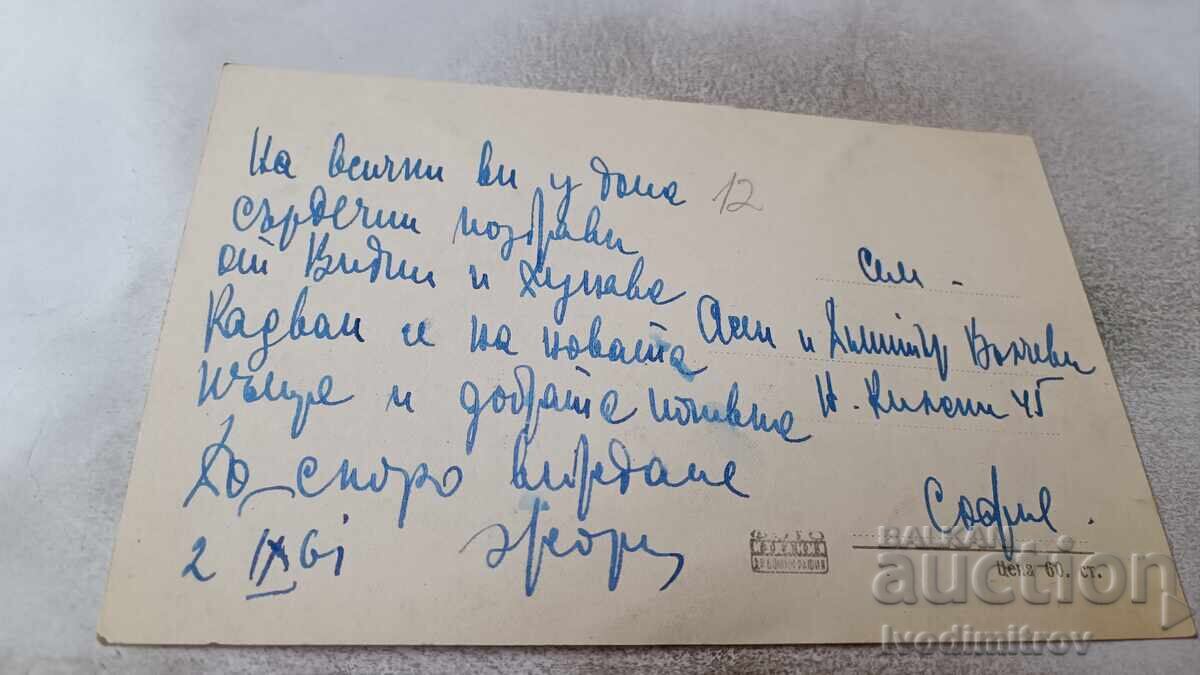 На всички ви у дома
сърдечни поздрави
от Видин и Дунава
Радвам се на новата
къща и добрата почивка
До скоро виждане
2 IX 61
12
Сем.
Ани и Димитър Вълчеви
45
София.
цена 60. ст.
BALKAN
auction
Ivodimitrov